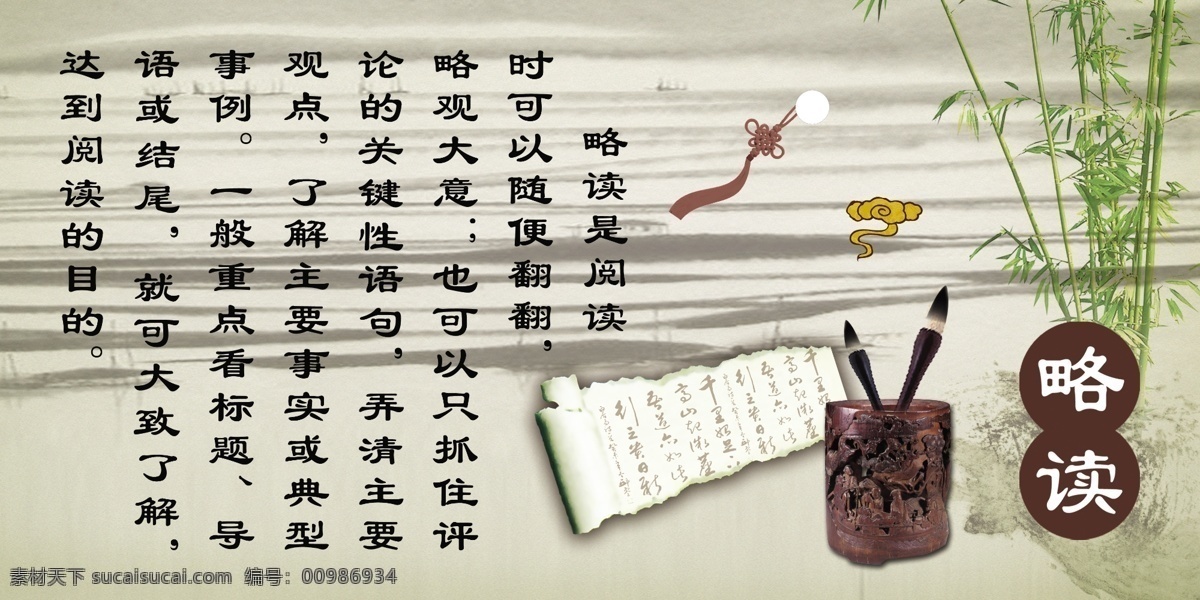 略读
略读是阅读
时可以随便翻翻，
略观大意；也可以只抓住评
论的关键性语句，弄清主要
观点，了解主要事实或典型
事例。一般重点看标题、导
语或结尾，就可大致了解，
达到阅读的目的。
素材天下 sucaisucai.com 编号：00986934